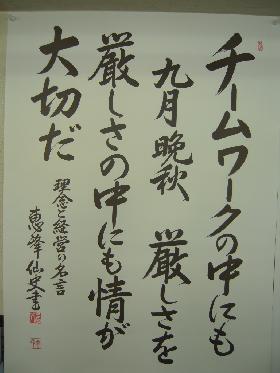 チームワークの中にも
九月晩秋 厳しさを
厳しさの中にも情が
大切だ
理念と経営の名言
恵峰仙史書